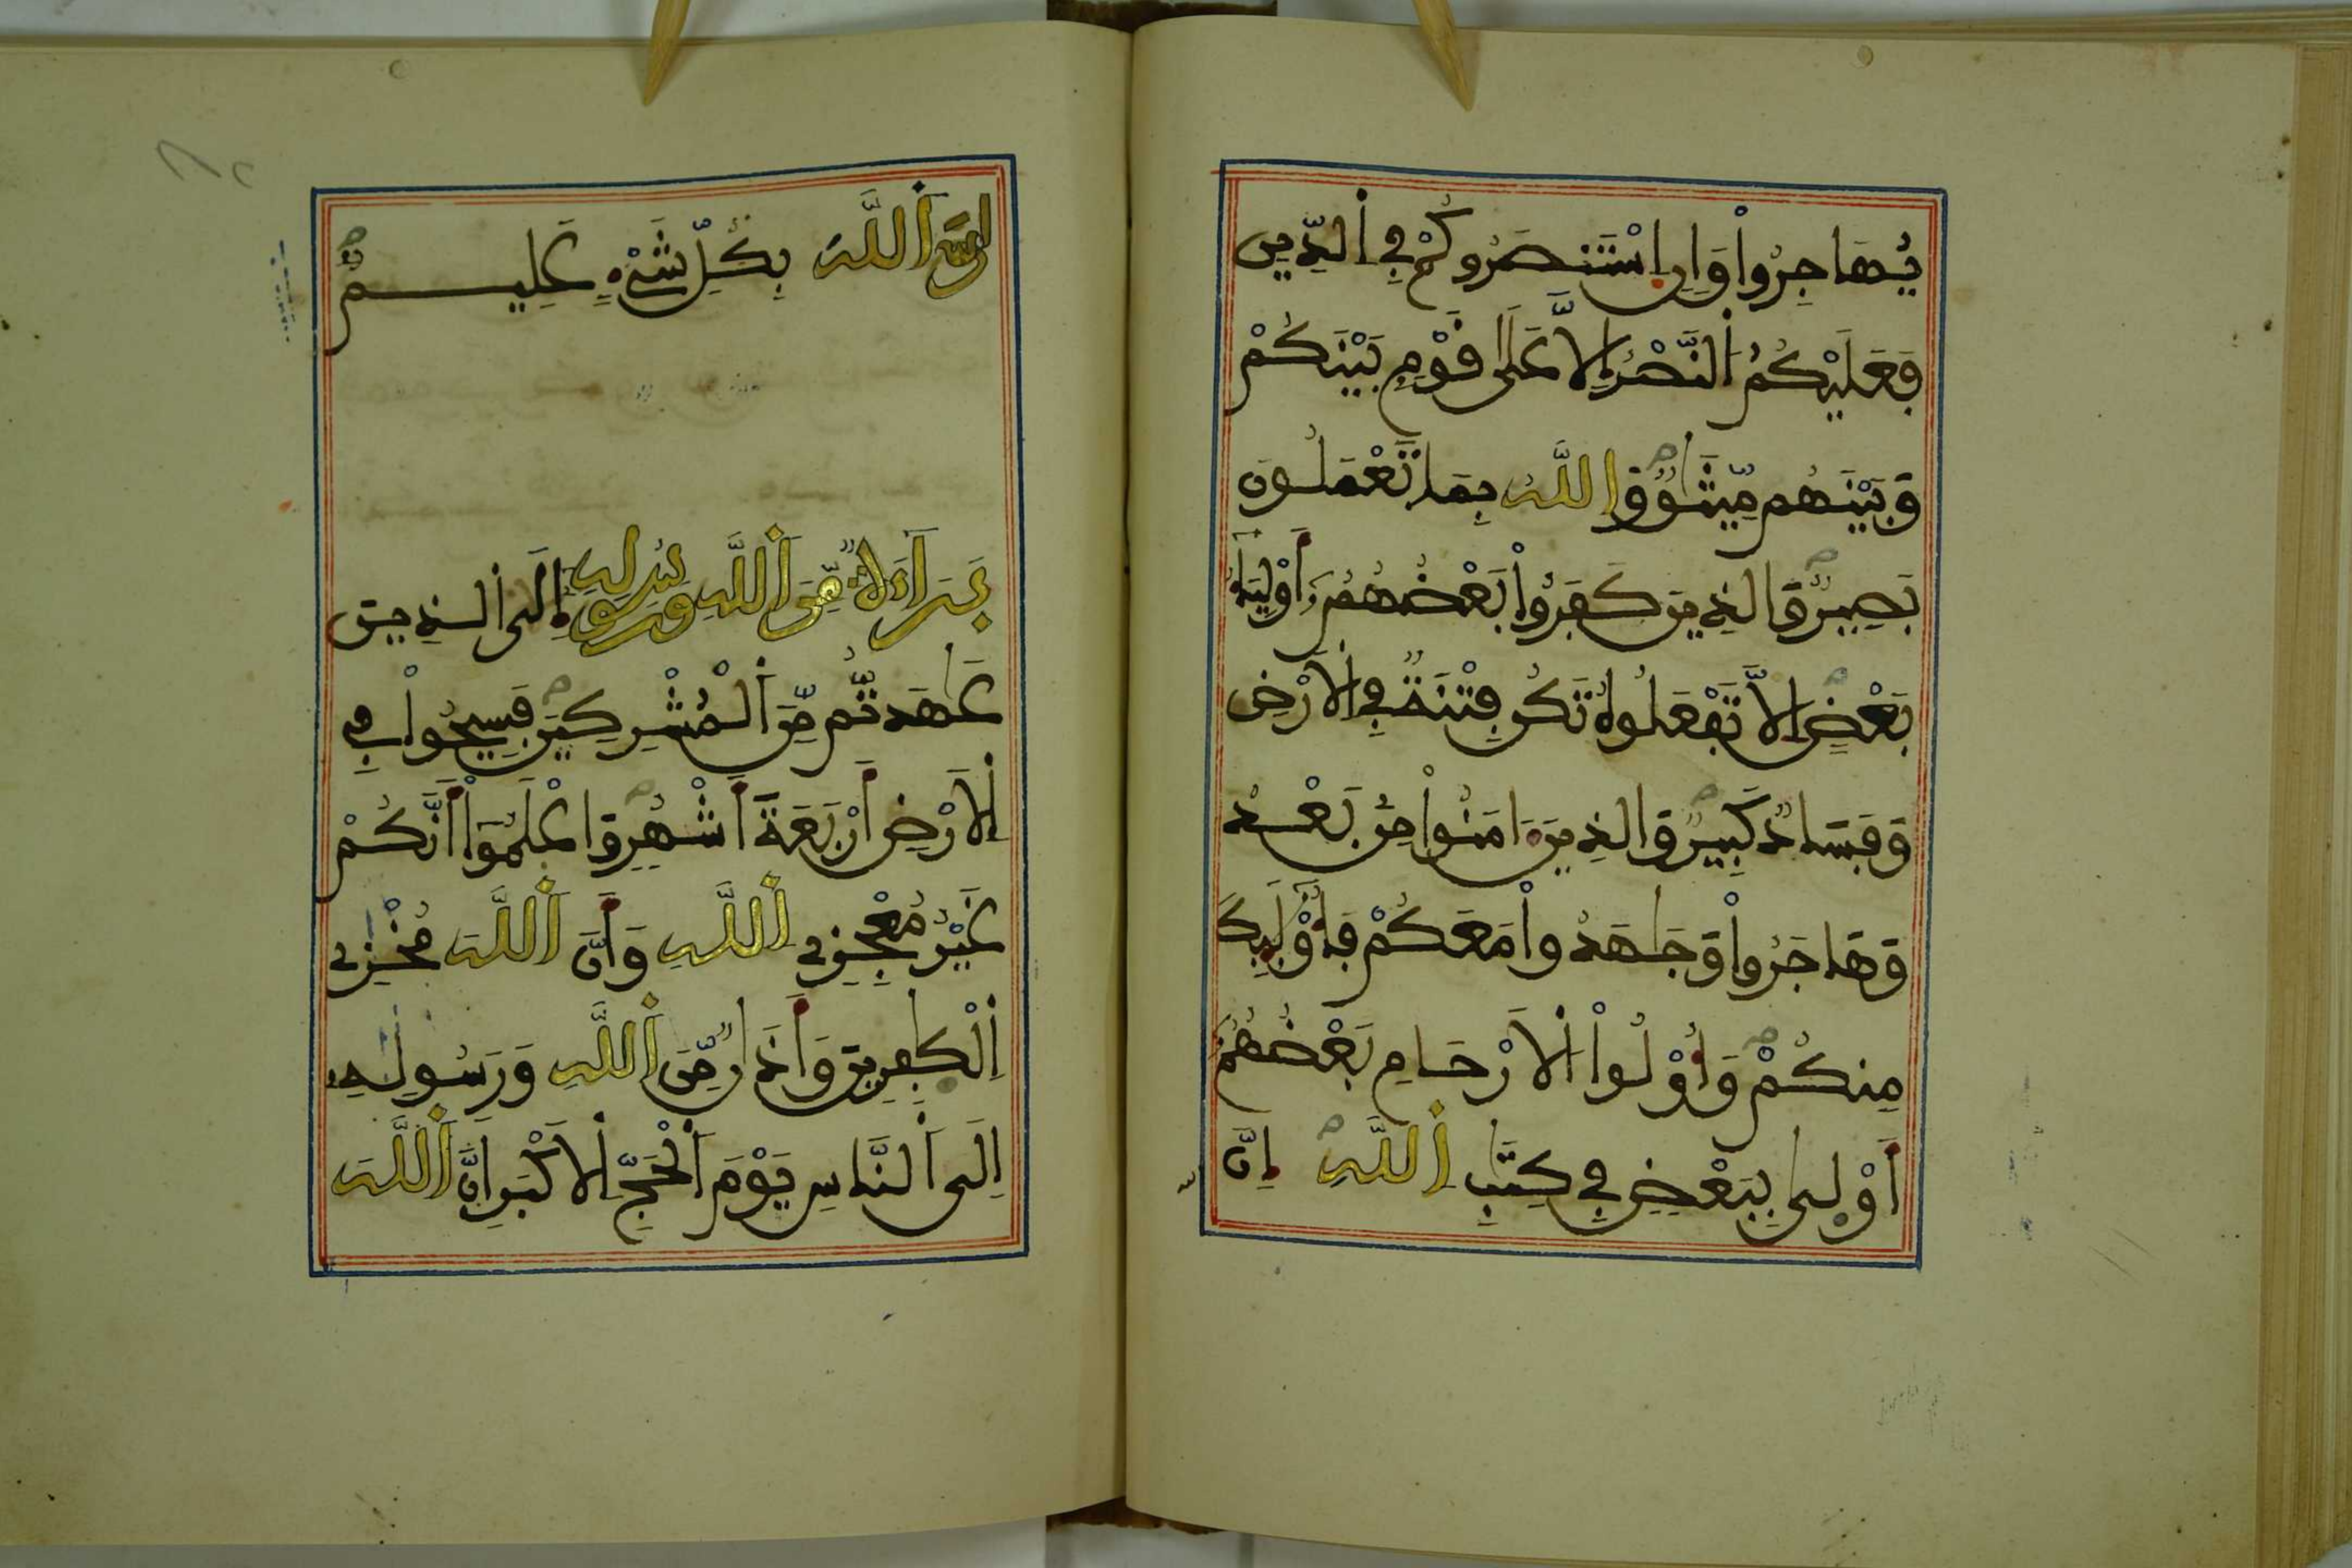 يُهَاجِرُواْ وَإِنِ اِسْتَنصَرُوكُمْ فِي اِلدِّينِ
فَعَلَيْكُمُ اُلنَّصْرُ إِلَّا عَلَىٰ قَوْمِۢ بَيْنَكُمْ
وَبَيْنَهُم مِّيثَٰقٌ وَاللَّهُ بِمَا تَعْمَلُونَ
بَصِيرٌ وَالذِينَ كَفَرُواْ بَعْضُهُمُ أَوْلِيَآءُ
بَعْضٍ اِلَّا تَفْعَلُوهُ تَكُن فِتْنَةٌ فِي اِلْأَرْضِ
وَفَسَادٌ كَبِيرٌ وَالذِينَ ءَامَنُواْ مِنۢ بَعْدُ
وَهَاجَرُواْ وَجَٰهَدُواْ مَعَكُمْ فَأُوْلَٰئِكَ
مِنكُمْ وَأُوْلُواْ اُلْأَرْحَامِ بَعْضُهُمُ
أَوْلَىٰ بِبَعْضٍ فِي كِتَٰبِ اِللَّهِ إِنَّ
اَللَّهَ بِكُلِّ شَيْءٍ عَلِيمٌ
بَرَآءَةٌ مِّنَ اَللَّهِ وَرَسُولِهِ إِلَى اَلذِينَ
عَٰهَدتُّم مِّنَ اَلْمُشْرِكِينَ فَسِيحُواْ فِي
اِلْأَرْضِ أَرْبَعَةَ أَشْهُرٍ وَاعْلَمُواْ أَنَّكُمْ
غَيْرُ مُعْجِزِي اِللَّهِ وَأَنَّ اَللَّهَ مُخْزِي
اِلْكَٰفِرِينَ وَأَذَٰنٌ مِّنَ اَللَّهِ وَرَسُولِهِ
إِلَى اَلنَّاسِ يَوْمَ اَلْحَجِّ اِلْأَكْبَرِ أَنَّ اَللَّهَ